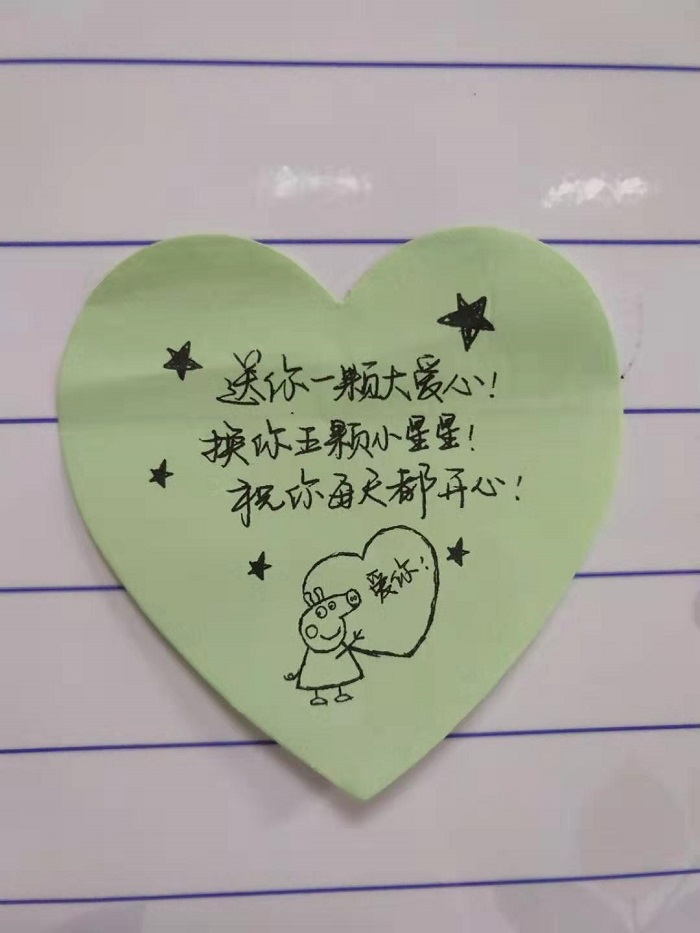 送你一颗大爱心！
换你五颗小星星！
祝你每天都开心！
爱你！